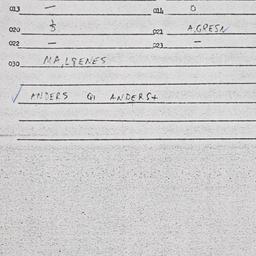 013 — 014 0
020 1/5 021 A.GRESN
022 — 023 —
030 MA,LGENES
ANDERS GI ANDERS+